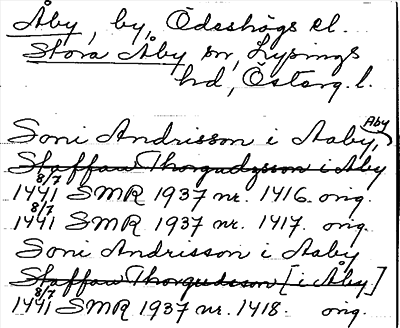 Åby, by, Ödeshögs cl.
Stora Åby sn, Lysings
hd, Östarg. l.
Soni Andrisson i Aaby, Aby
Staffan Thorgudzsson i Aby
8/7
1441 SMR 1937 nr. 1416. orig.
8/7
1441 SMR 1937 nr. 1417. orig.
Soni Andrisson i Aaby
Staffan Thorgudsson [i Åby]
8/7
1441 SMR 1937 nr. 1418. orig.